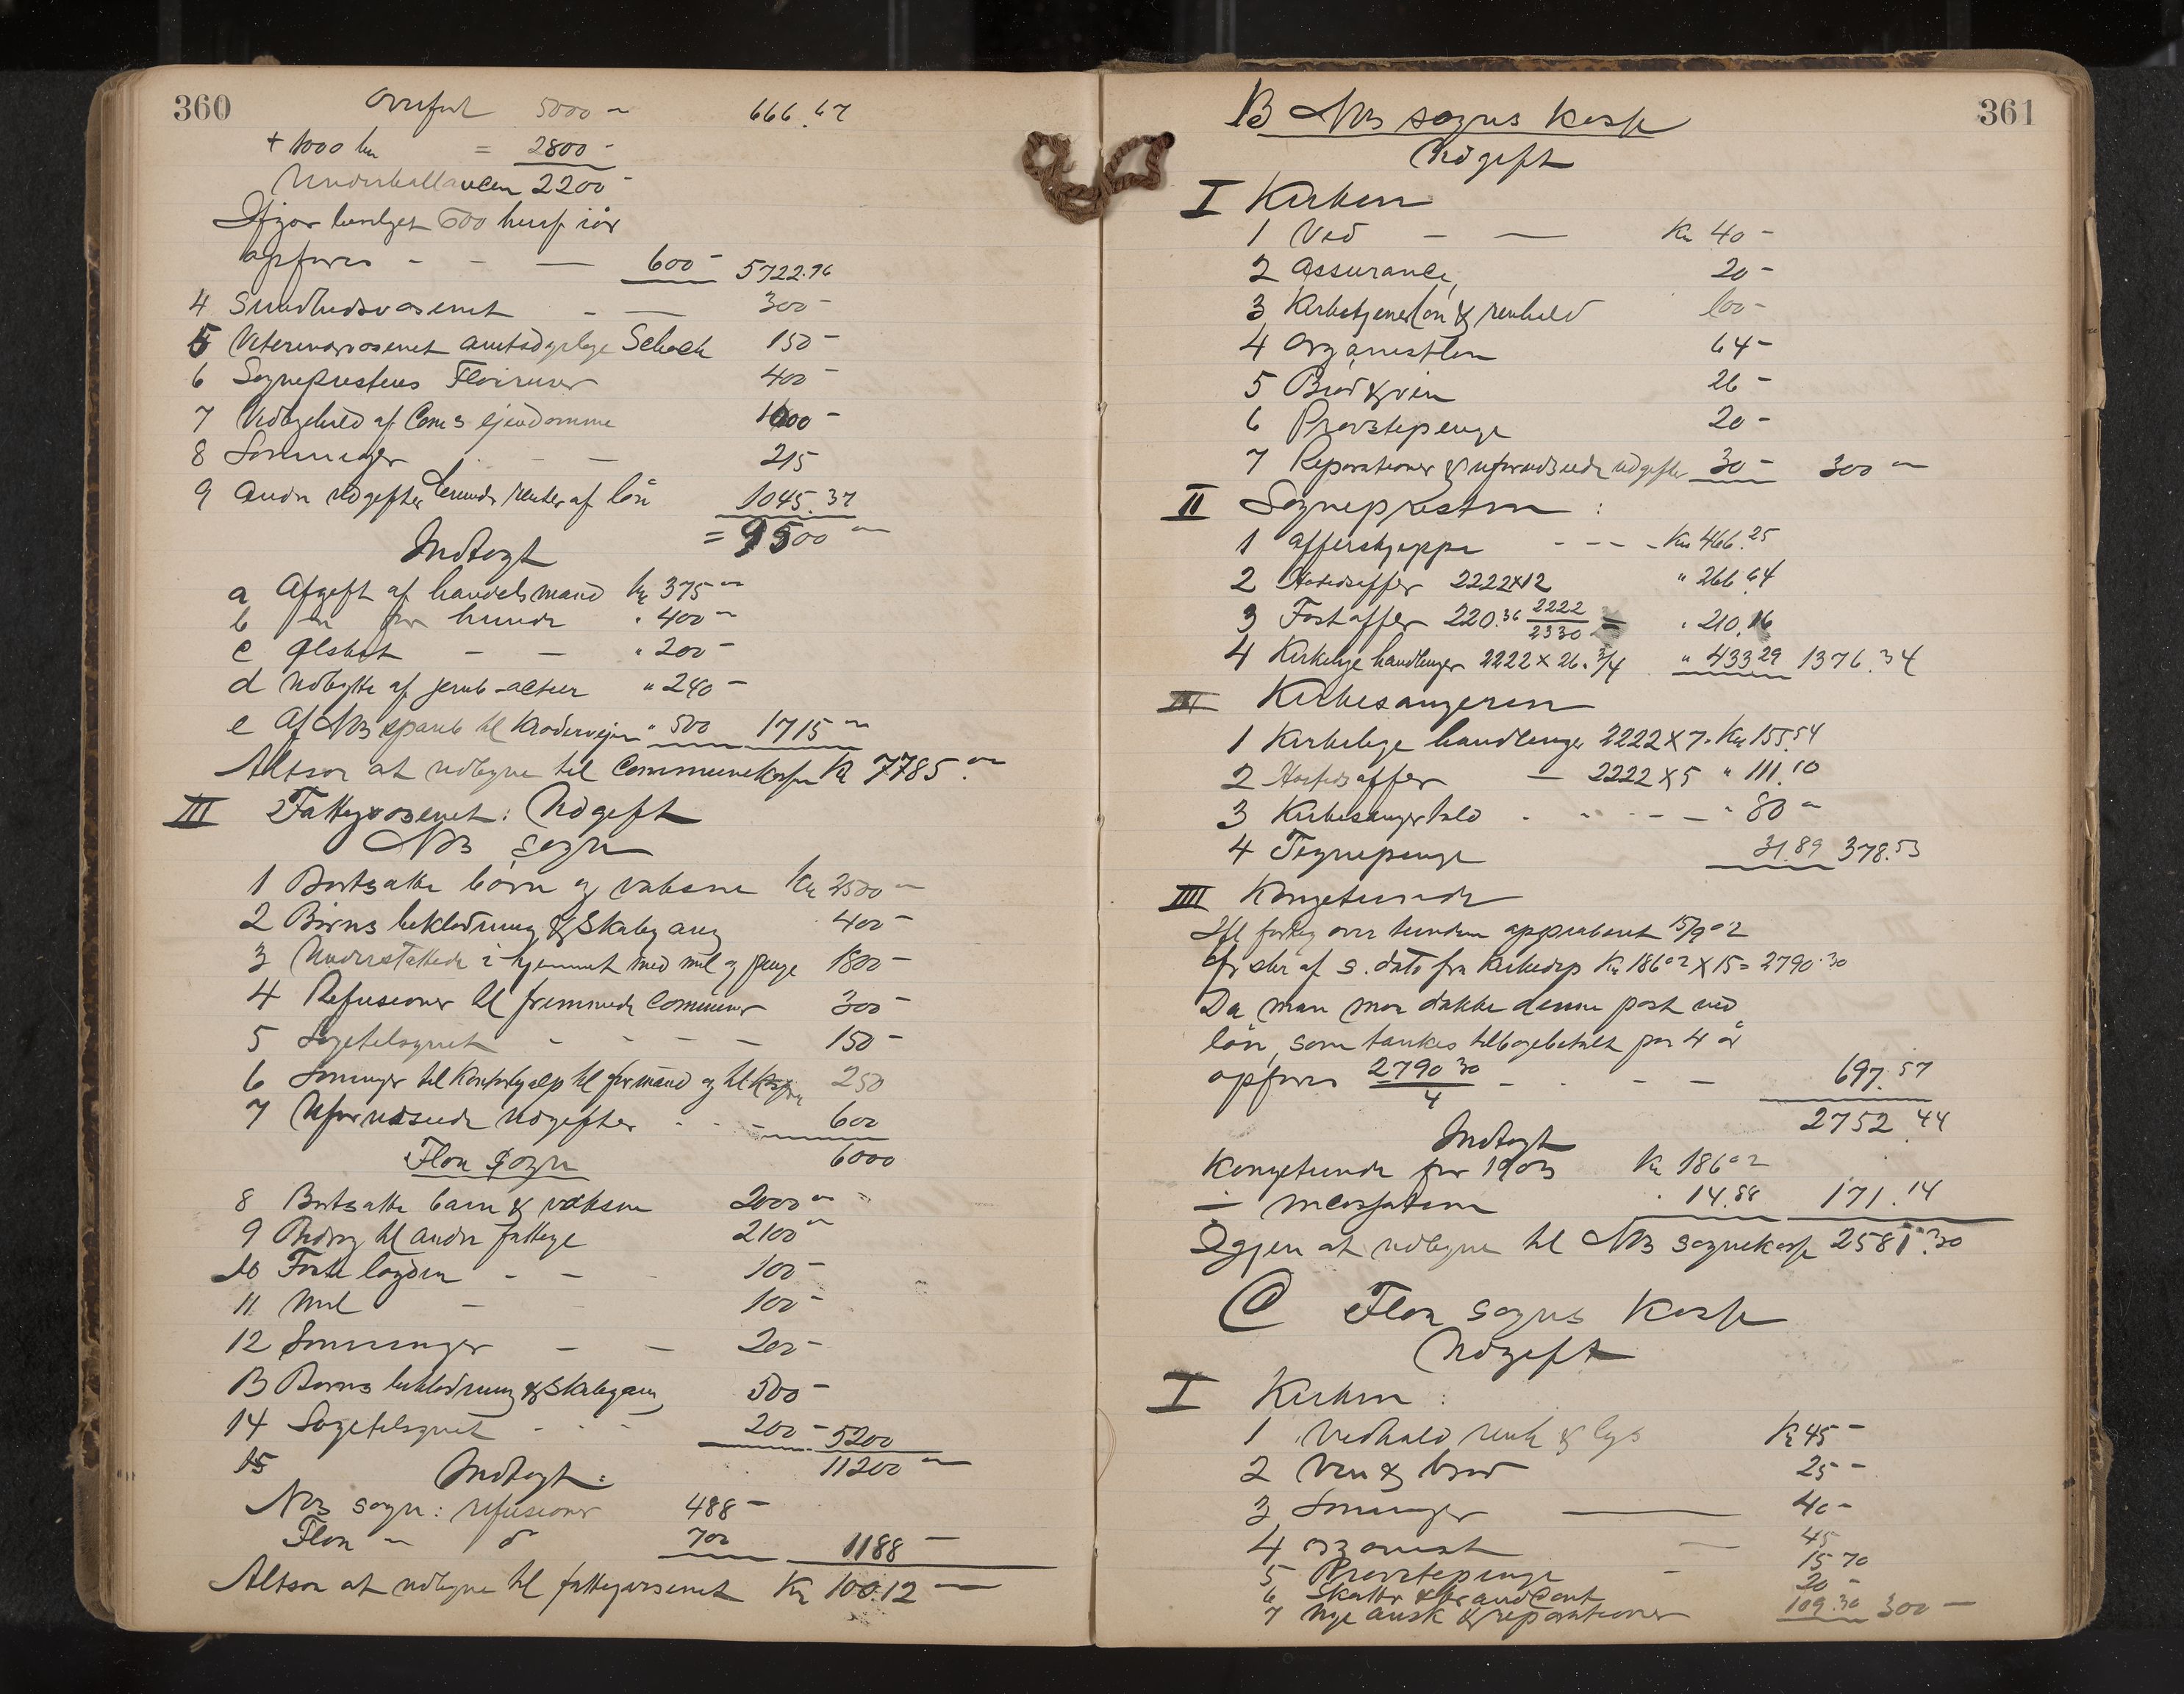 360
Overført 5000 – 666.67
+ 1000 km = 2800 –
Underballancen 2200 –
Ifjor bevilget 600 hvisp iår
opføres - - — 600 – 5722.96
4 Sundhedsvæsenet - — 300 –
5 Veterinærvæsenet amtsdyrlæge Schack 150 –
6 Sogneprestens 400 –
7 Vedligehold af Coms ejendomme 1000 –
8 Lønninger - — 215
9 Andre udgifter herunder renter af lån 1045.37
= 9500 –
Indtægt
a Afgift af handelsmænd Kr 375 –
b for hunde " 400 –
c Ølskat — — " 200 –
d Udbytte af jernb-actier " 240 –
e Af Næs spareb til Krødervejen " 500 1715 –
Altsaa at udligne til Communekassen Kr 7785.–
III Fattigvæsenet: Udgift
Næs sogn
1 Bortsatte børn og voksne Kr 2500 –
2 Børns beklædning & Skolegang 400 –
3 Understøttede i hjemmet med mel og penge 1800 –
4 Refusioner til fremmede Communer 300 –
5 Lægetilsynet - - - — 150 –
6 Lønninger til Kontorhjælp til formand og til 250
7 Uforudseede udgifter - - — 600
6000
Flaa Sogn
8 Bortsatte barn & voksne 2000 –
9 Bidrag til andre fattige 2100 –
10 Faste lægden - — 100 –
11 Mel — 100 –
12 Lønninger — — 200 –
13 Børns beklædning & Skolegang 500 –
14 Lægetilsynet - - - 200 – 5200
15 11200 –
Indtægt:
Næs sogn: refusioner 488 –
Flaa – d 700 1188 –
Altsaa at udligne til fattigvæsenet Kr 10012 –
361
B Næs sogns kasse
Udgift
I Kirken
1 Ved — — Kr 40 –
2 Assurance 20 –
3 Kirketjenerløn & renhold 100 –
4 Organistløn 64 –
5 Brød & vin 26 –
6 Provstepenge 20 –
7 Reparationer & uforudseede udgifter 30 – 300 –
II Sognepresten :
1 Offerskjæppe - - - Kr 466.25
2 Høitidsoffer 2222x12 " 266.64
3 Fastoffer 220.36 2222/2330 = " 210.16
4 Kirkelige handlinger 2222 x 26 x 3/4 " 433 29 1376.34
III Kirkesangeren
1 Kirkelige handlinger 2222 x 7 = Kr 155.54
2 Høitidsoffer — 2222 x 5 " 111.10
3 Kirkesangertold - - - — " 80 –
4 Tegnepenge 31.89 378.53
IIII Kongetiende
Ifl forteg over tienden approberet 15/9 02
af s. dato fra Kirkedep Kr 186 02 x 15 = 2790.30
Da man maa dække denne post ved
lån, som tænkes tilbagebetalt paa 4 år
opføres 2790 30/4 - - - — 697.57
2752.44
Indtægt
Kongetiende for 1903 Kr 186 02
÷ 14.88 171.14
Igjen at udligne til Næs sognekasse 2581.30
C Flaa sogns kasse
Udgift
I Kirken :
1 Vedhold renh & lys Kr 45 –
2 Vin & brød 25 –
3 Lønninger — 40 –
4 Organist — 45
5 Provstepenge - 15 70
6 Skatter & brandcont 20 –
7 Nye ansk & reparationer 109.30 300 –